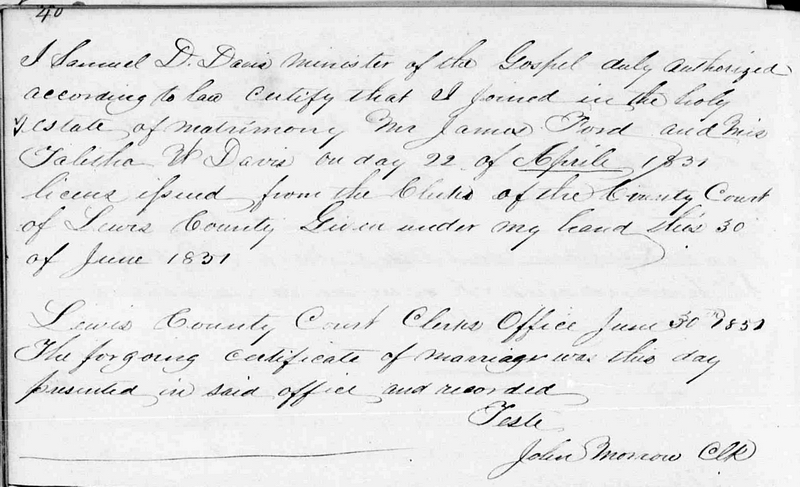 40
I Samuel D. Davis minister of the Gospel duly authorized
according to law certify that I joined in the holy
estate of matrimony Mr James Ford and Mis
Talitha W Davis on day 22 of Aprile 1851
licens issued from the Clerks of the County Court
of Lewis County Given under my hand this 30
of June 1851
Lewis County Court Clerks Office June 30th 1851
The forgoing certificate of marriage was this day
presented in said office and recorded
Teste
John Morrow Clk